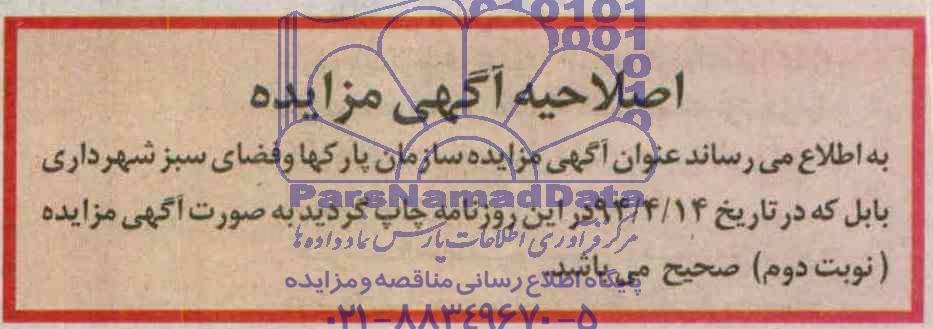 اصلاحیه آگهی مزایده
به اطلاع می رساند عنوان آگهی مزایده سازمان پارکها وفضای سبز شهرداری
بابل که در تاریخ ۹۴/۴/۱۴ در این روزنامه چاپ گردید به صورت آگهی مزایده
ParsNamadData
مرکز فرآوری اطلاعات پارس نماد داده ها
(نوبت دوم) صحیح می باشد.
پایگاه اطلاع رسانی مناقصه و مزایده
۰۲۱-۸۸۳۴۹۶۷۰-۵